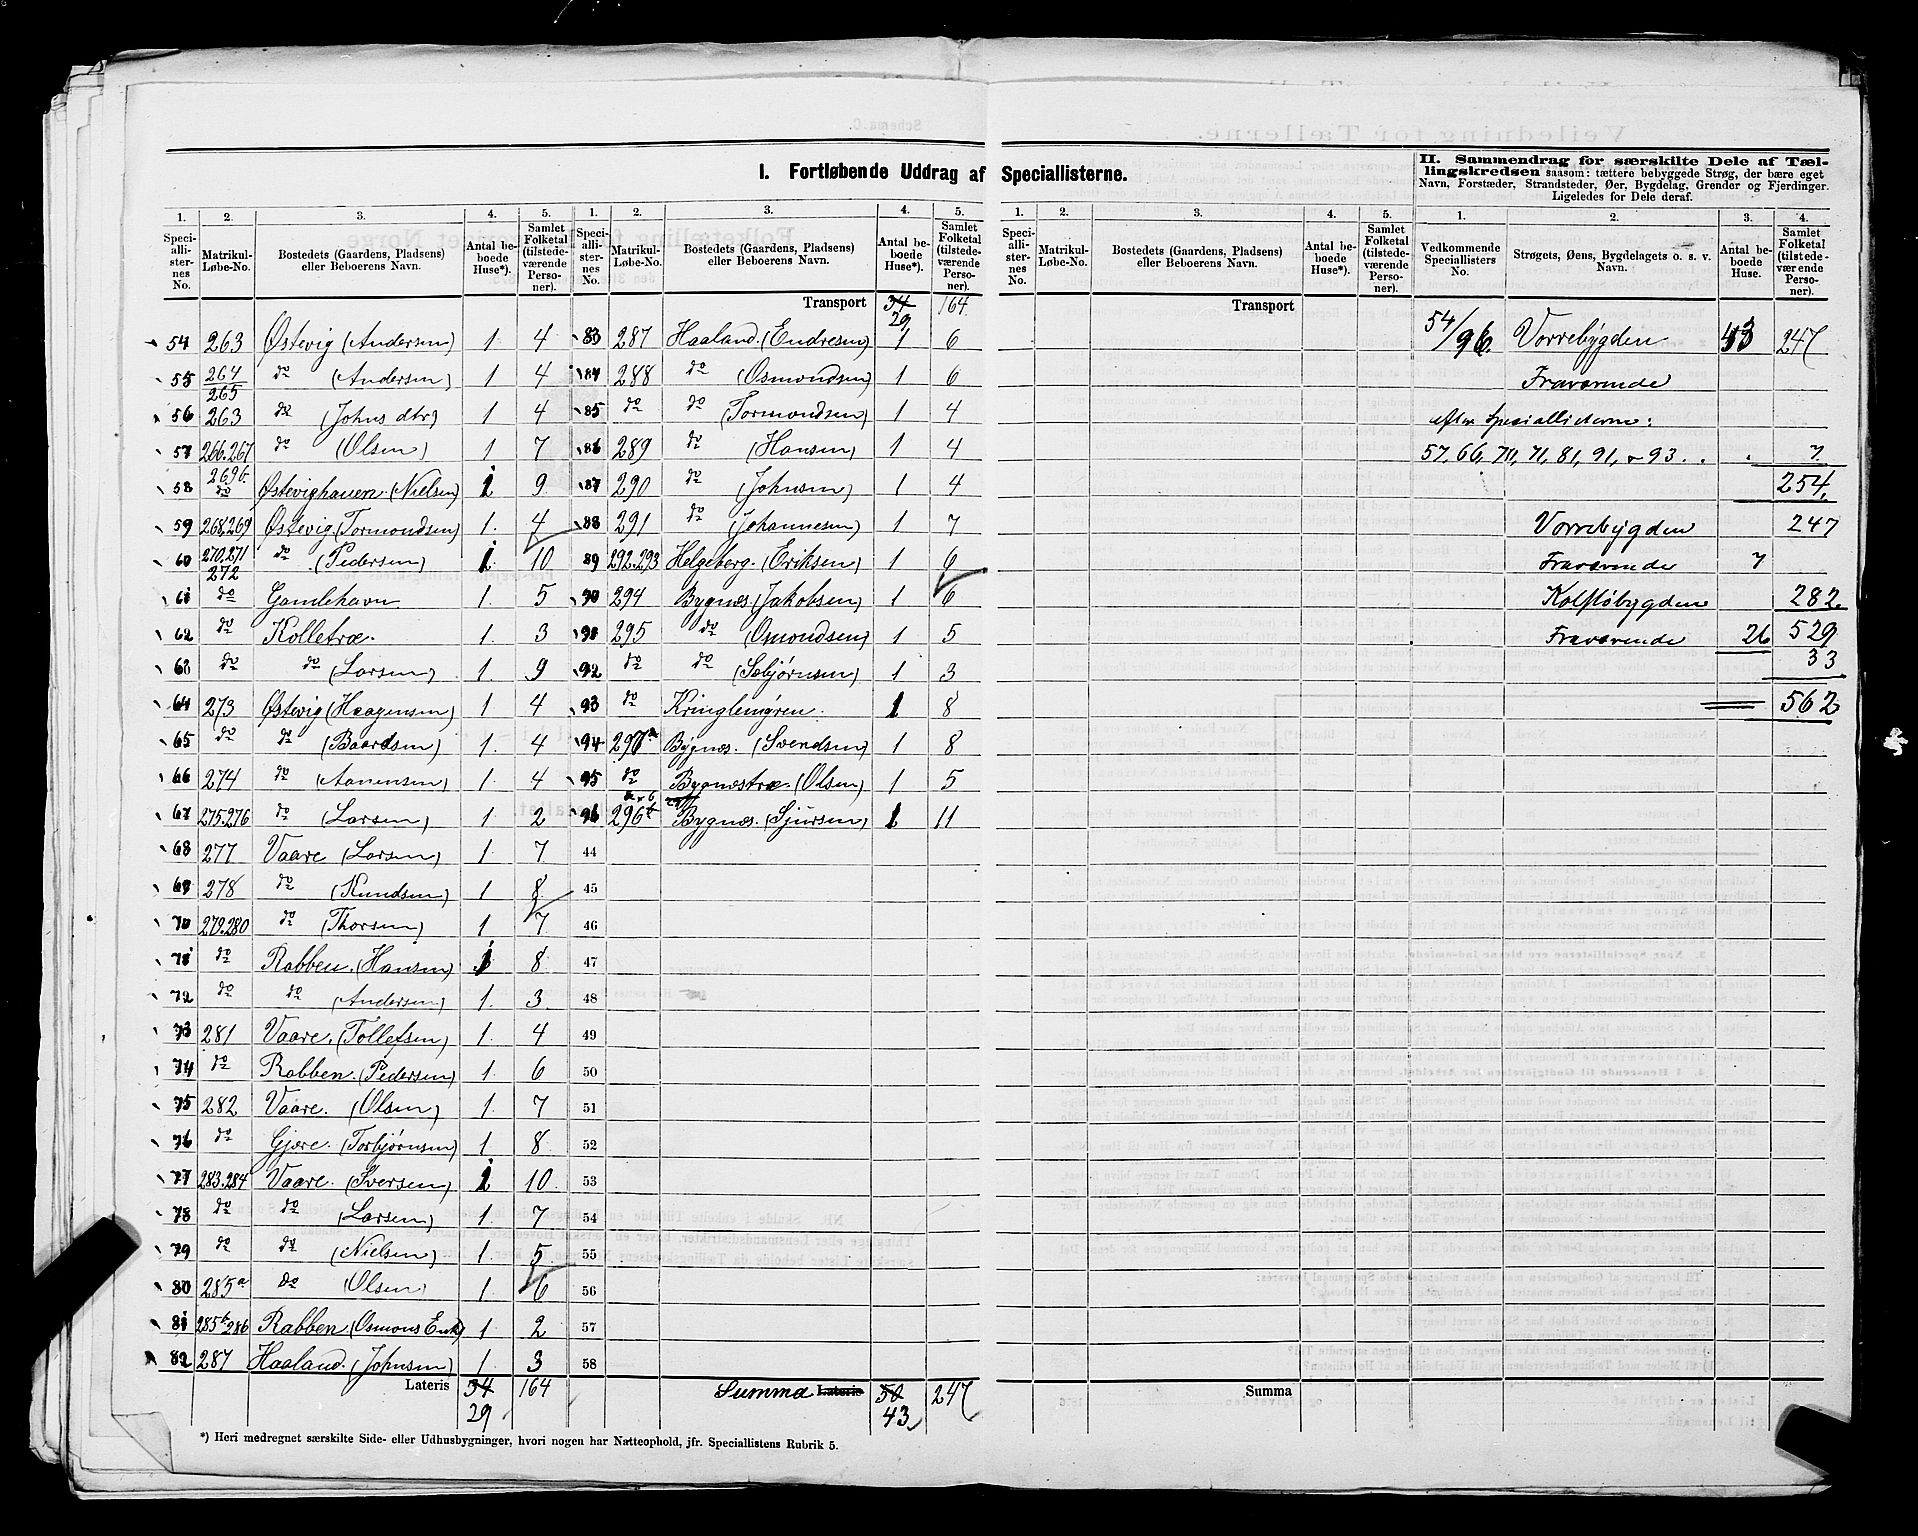 I. Fortløbende Uddrag af Speciallisterne.
II. Sammendrag for særskilte Dele af Tæl-
lingskredsen saasom: tættere bebyggede Strøg, der bære eget
Navn, Forstæder, Strandsteder, Øer, Bygdelag, Grender og Fjerdinger.
Ligeledes for Dele deraf.
1. 2. 3. 4. 5. 1. 2. 3. 4. 5. 1. 2. 3. 4. 5. 1. 2. 3. 4.
Speciallisternes No. Matrikul-Løbe-No. Bostedets (Gaardens, Pladsens) eller Beboerens Navn. Antal beboede Huse*). Samlet Folketal (tilstedeværende Personer).
Speciallisternes No. Matrikul-Løbe-No. Bostedets (Gaardens, Pladsens) eller Beboerens Navn. Antal beboede Huse*). Samlet Folketal (tilstedeværende Personer).
Speciallisternes No. Matrikul-Løbe-No. Bostedets (Gaardens, Pladsens) eller Beboerens Navn. Antal beboede Huse*). Samlet Folketal (tilstedeværende Personer).
Vedkommende Speciallisters No. Strøgets, Øens, Bygdelagets o. s. v. Navn. Antal beboede Huse. Samlet Folketal (tilstedeværende Personer).
54 263 Østevig (Andersen) 1 4
55 264/265 do (Andersen) 1 4
56 263 do (Johns dtr) 1 4
57 266.267 do (Olsen) 1 7
58 269b. do Østevighauen (Nielsen) 1 9
59 268,269 Østevig (Tormondsen) 1. 4
60 270,271 272 do (Pedersen) 1 10
61 do Gamlehavn 1. 5
62 do Kolletræ. 1. 3
63 do do (Larsen) 1. 9
64 273 Østevig (Haagensen) 1 4
65 do do (Baardsen) 1. 4
66 274 do (Aanensen) 1 4
67 275.276 do (Larsen) 1 2
68 277 Vaare (Larsen) 1. 7
69 278 do (Knudsen) 1 8
70 279.280 do (Thorsen) 1 7
71 do Rabben. (Hansen) 1 8
72 do do (Andersen) 1. 3
73 281 Vaare. (Tollefsen) 1. 4
74 do Rabben. (Pedersen) 1. 6
75 282 Vaare. (Olsen) 1. 7
76 do Gjære. (Torbjørnsen) 1. 8
77 283.284 Vaare. (Iversen) 1 10
78 do do (Larsen) 1. 7
79 do do (Nielsen) 1. 5
80 285a do (Olsen) 1 6
81 285b 286 Rabben (Osmons Enk) 1 2
82 287 Haaland. (Johnsen) 1. 3
Lateris 34 164
29
Transport 34 164
29
83 287 Haaland. (Endresen) 1 6
84 288 do (Osmondsen) 1 6
85 do do (Tormondsen) 1 4
86 289 do (Hansen) 1 4
87 290 do (Johnsen) 1 4
88 291 do (Johannesen) 1 7
89 292.293 Helgeberg. (Eriksen) 1 6
90 294 Bygnæs. (Jakobsen) 1 6
91 295 do (Osmondsen) 1 5
92 do do (Sebjørnsen) 1 3
93 do Kringlemyren. 1 8
94 297a Bygnæs. (Svendsen) 1 8
95 do Bygnæstræ. (Olsen) 1 5
96 296 Bygnæs. (Sjursen) 1 11
44
45
46
47
48
49
50
51
52
53
54
55
56
57
58
Summa Lateris 50 247
43
Transport
Summa
54/96. Vorrebygden 43 247
Fraværende
efter Speciallisterne:
57, 66, 70, 71, 81, 91, & 93. . . 7
254.
Vorrebygden 247
Fraværende 7
Kolstøbygden 282.
Fraværende 26 529
33
562
*) Heri medregnet særskilte Side- eller Udhusbygninger, hvori nogen har Natteophold, jfr. Speciallistens Rubrik 5.